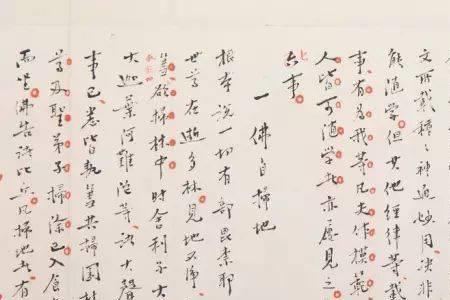 文所載種種神通妙用決非
能隨学但其他經律等載
事有為我等凡夫作模範
人皆可隨学者亦屢見之
七
六事
一佛自掃地
根本說一切有部毘奈耶
世尊在逝多林見地不淨
篲欲掃林中時舍利子大
大迦葉阿難陀等諸大聲
事已悉皆執篲共掃園林
尊及聖弟子掃除已入食
而坐佛告諸比丘凡掃地者有